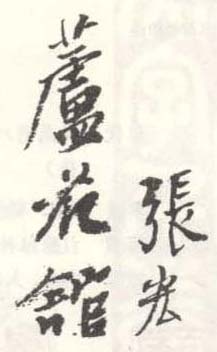 蘆花館
張光